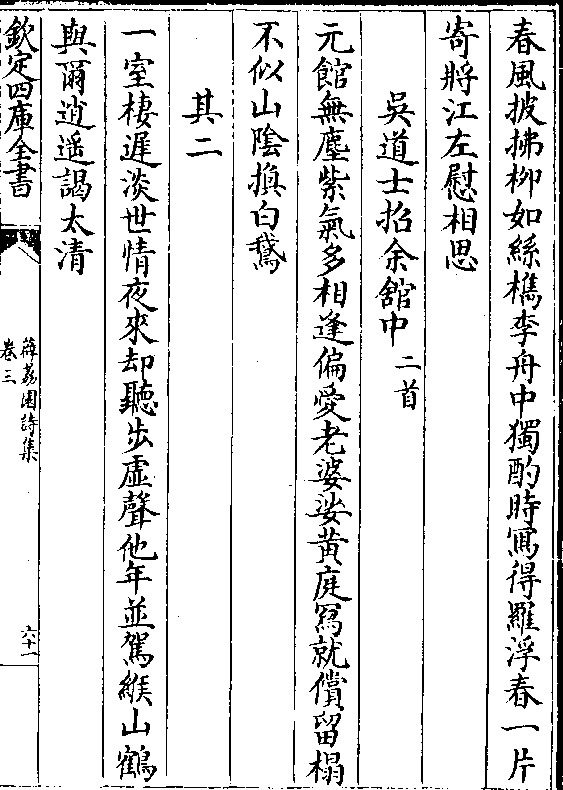 春風披拂柳如絲檇李舟中獨酌時寫得羅浮春一片
寄將江左慰相思
吳道士招余舘中二首
元館無塵紫氣多相逢偏愛老婆娑黄庭冩就償留榻
不似山陰換白鵞
其二
一室棲遲淡世情夜來却聽步虛聲他年並駕緱山鶴
與爾逍遥謁太清
欽定四庫全書
薜荔園詩集
卷三
六十一